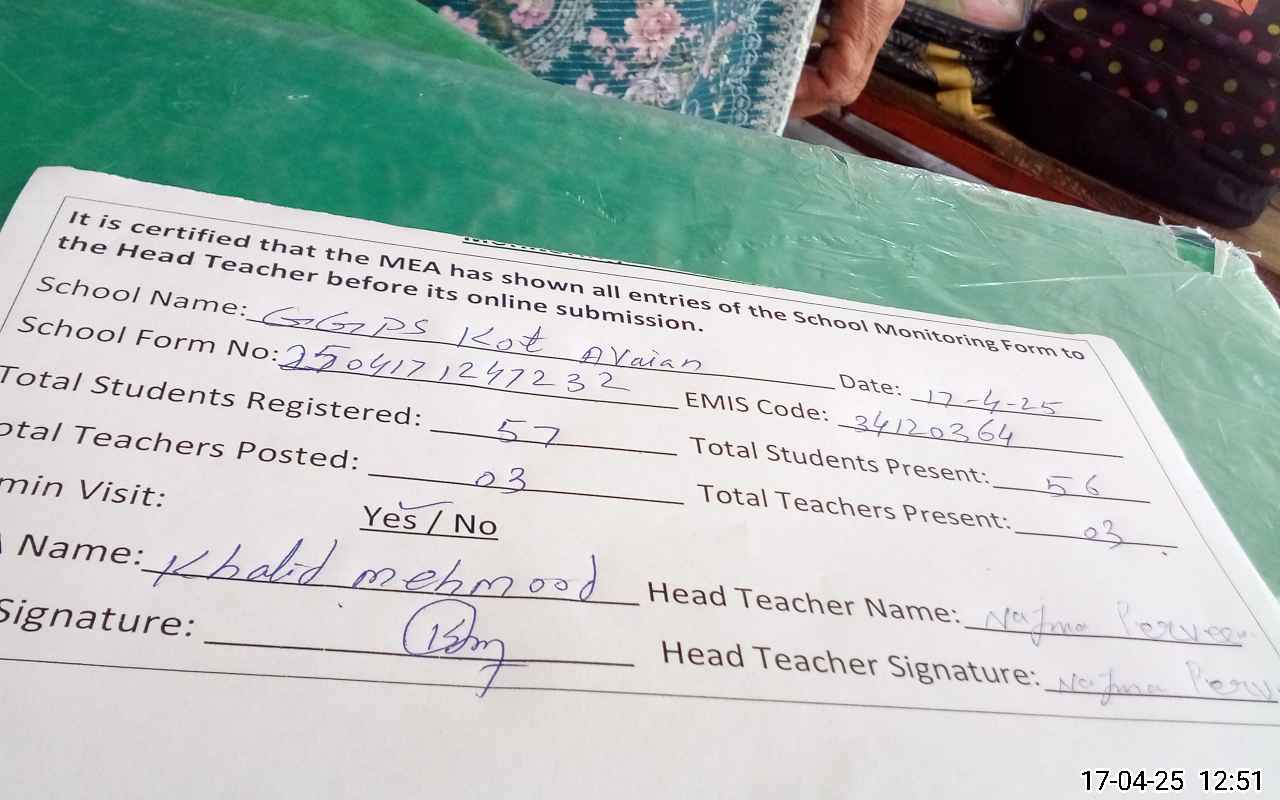 It is certified that the MEA has shown all entries of the School Monitoring Form to
the Head Teacher before its online submission.
School Name: GGPS Kot Avaian Date: 17-4-25
School Form No: 2504171247232 EMIS Code: 34120364
Total Students Registered: 57 Total Students Present: 56
otal Teachers Posted: 03 Total Teachers Present: 03
min Visit: Yes / No
Name: Khalid mehmood Head Teacher Name: Najma Perveen
Signature: Head Teacher Signature: Najma Perv
17-04-25 12:51